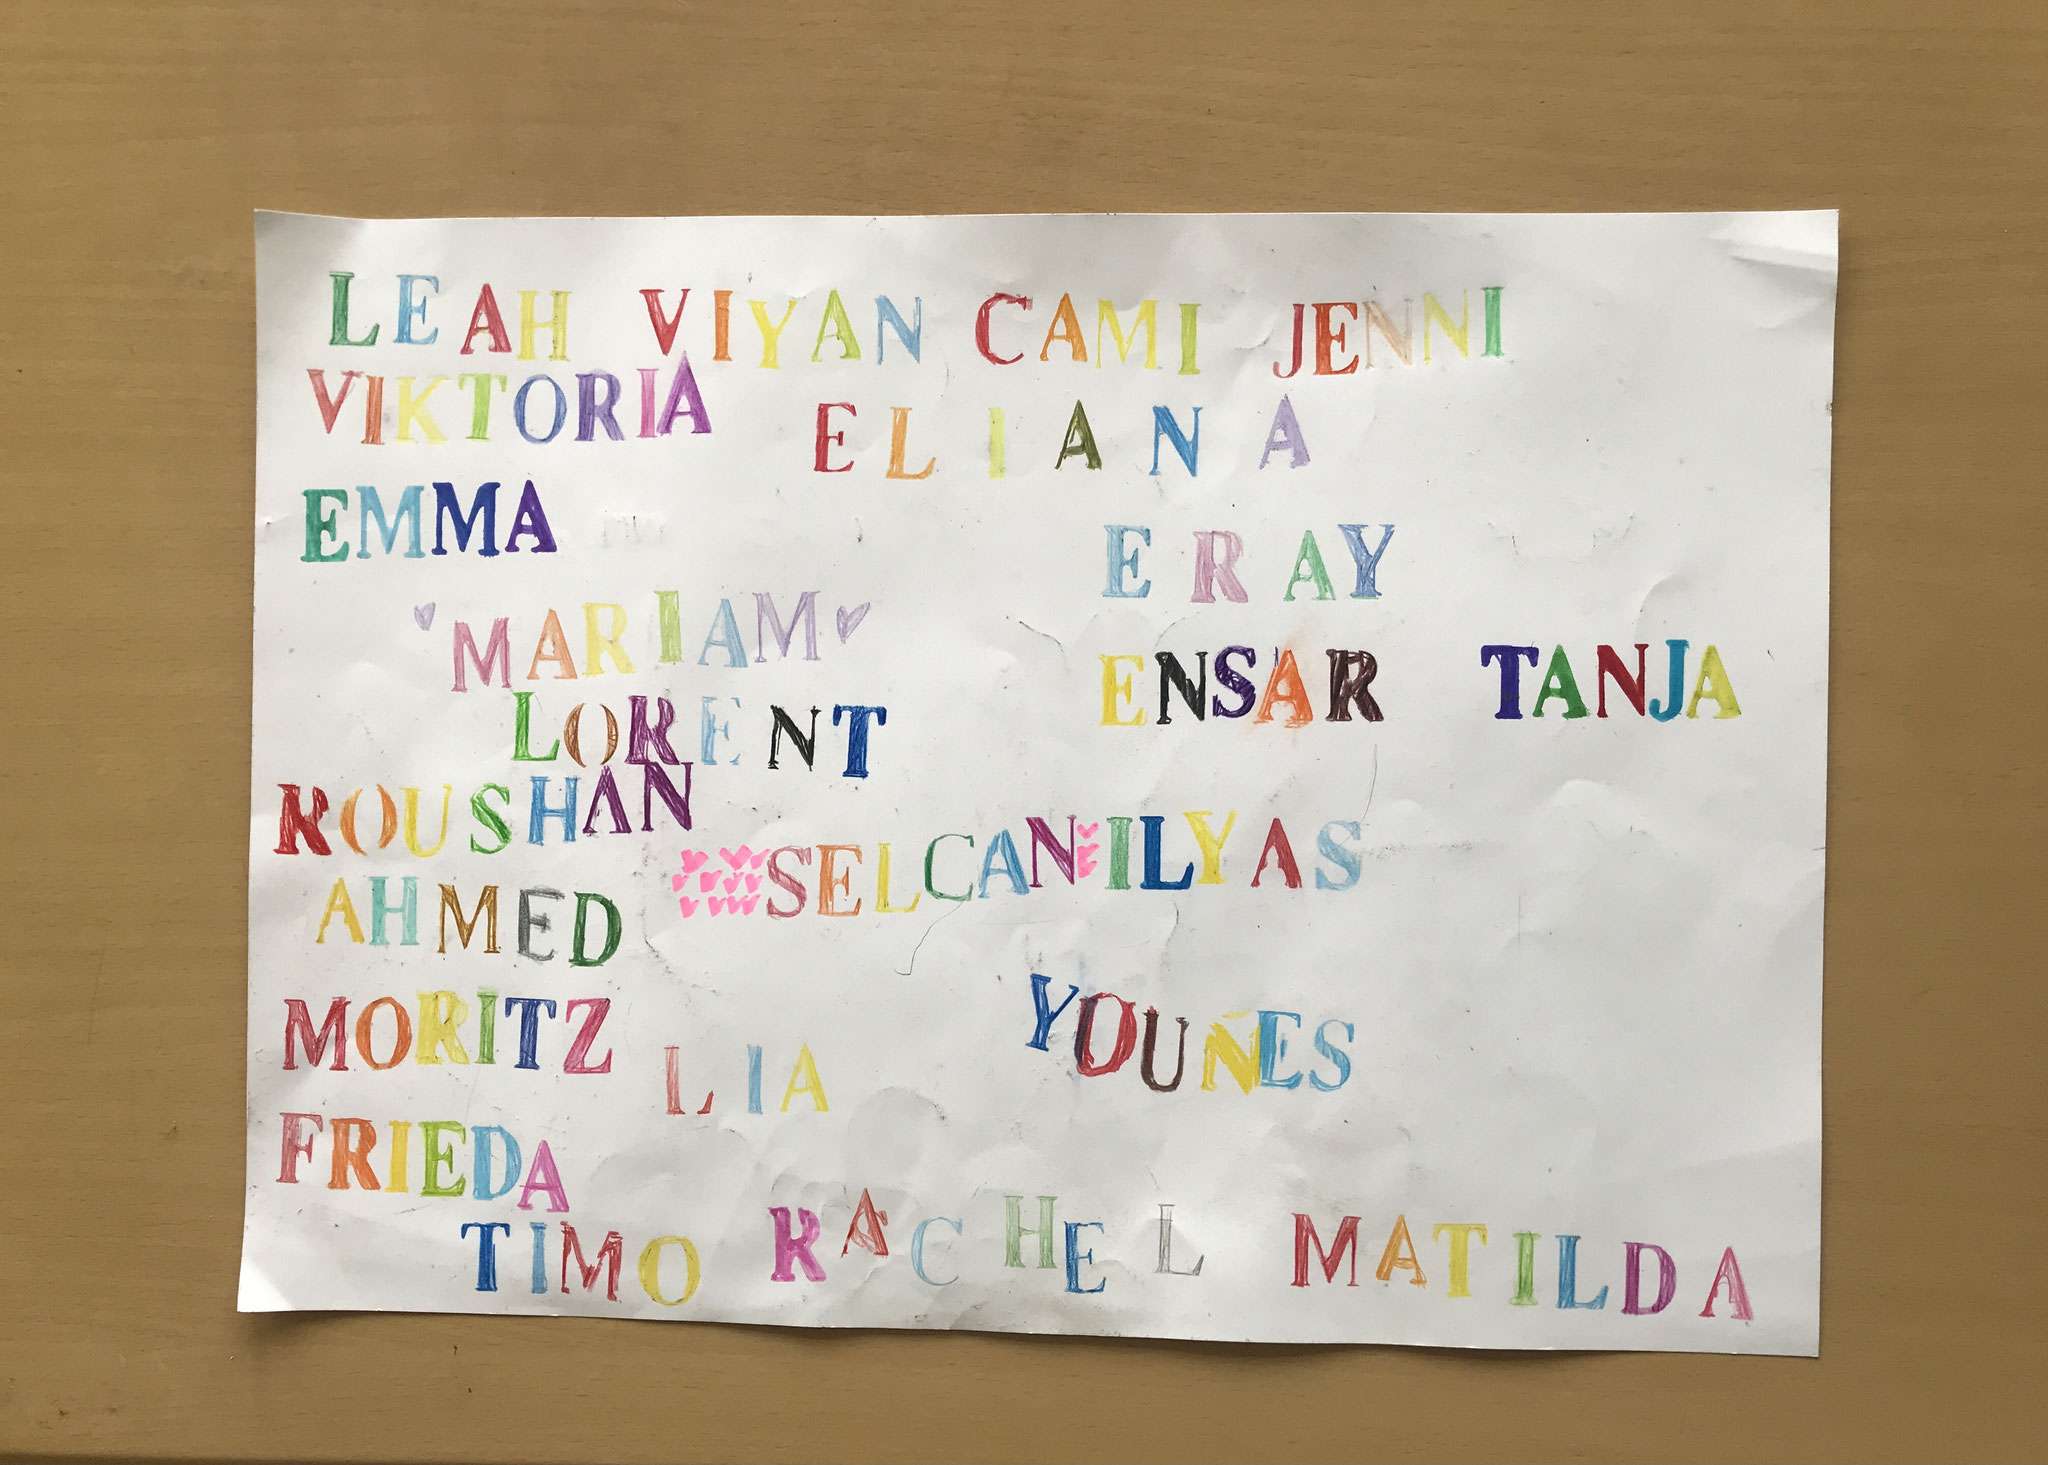 LEAH VIYAN CAMI JENNI
VIKTORIA ELIANA
EMMA ERAY
MARIAM
ENSAR TANJA
LORENT
ROUSHAN
SELCAN ILYAS
AHMED
MORITZ YOUNES
LIA
FRIEDA
TIMO RACHEL MATILDA